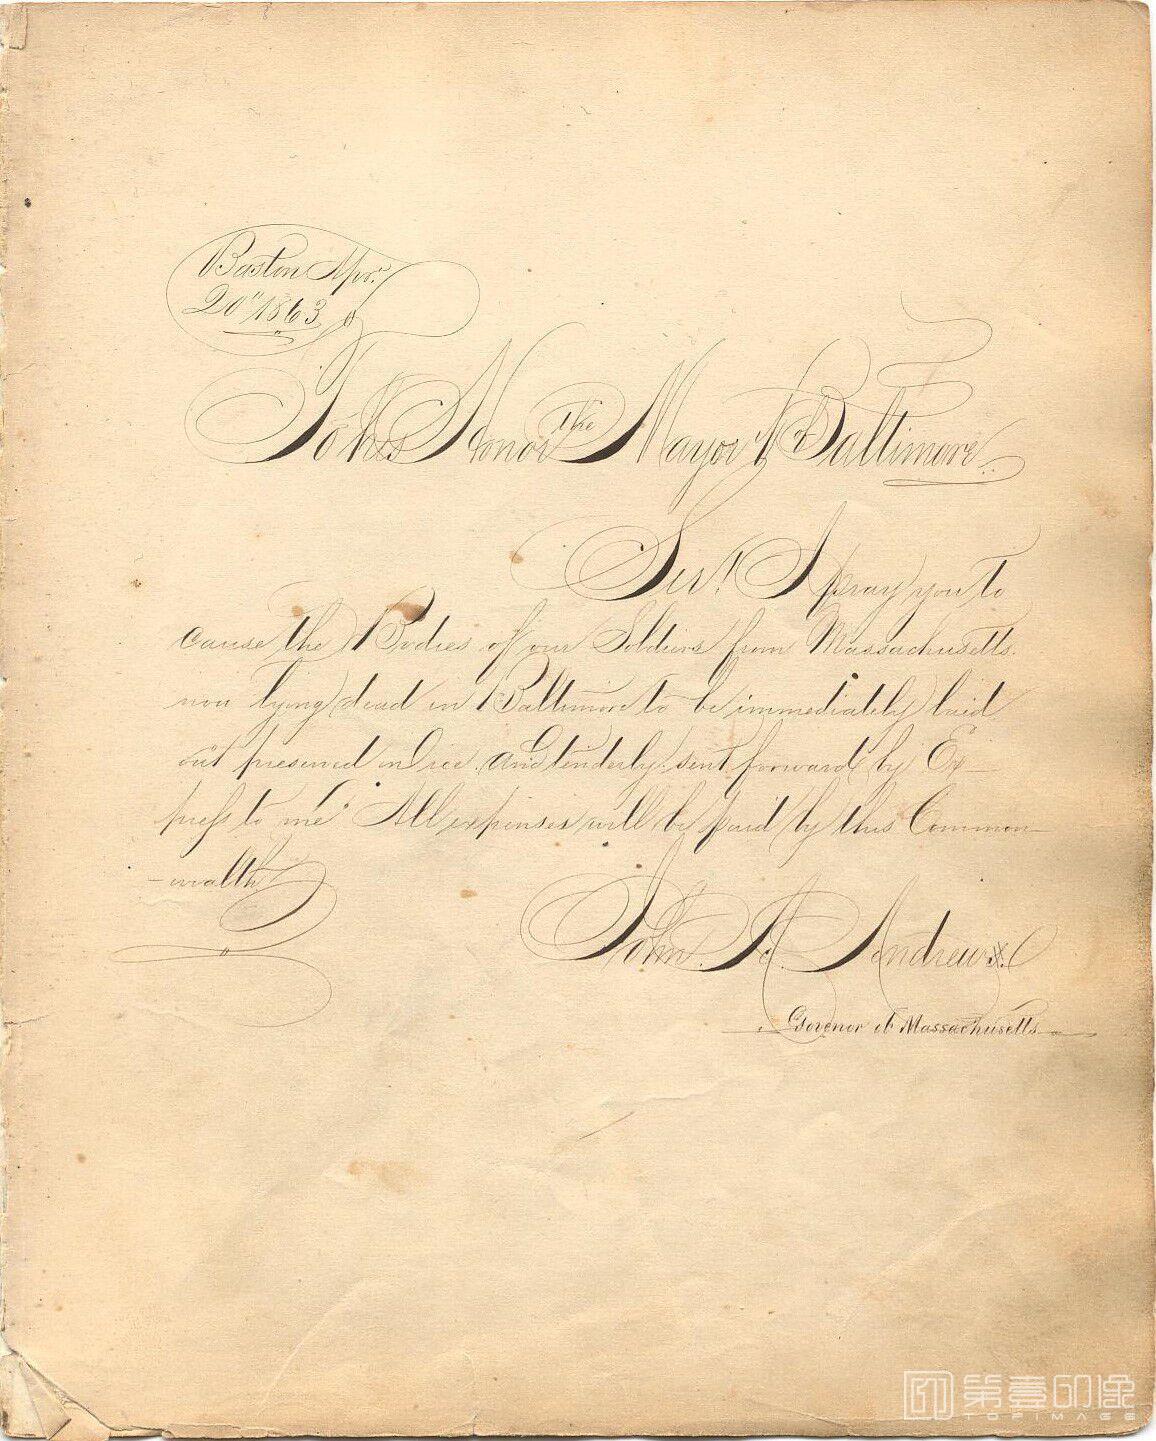 Boston Apr.
20" 1863
To his Honor the Mayor of Baltimore.
Sir! I pray you to
cause the Bodies of our Soldiers from Massachusetts.
now lying dead in Baltimore to be immediately laid
out preserved in Ice. and tenderly sent forward by Ex-
press to me. All expenses will be paid by this Common-
-wealth
John. A. Andrew.
Govenor of Massachusetts
第壹印像
TOPIMAGE